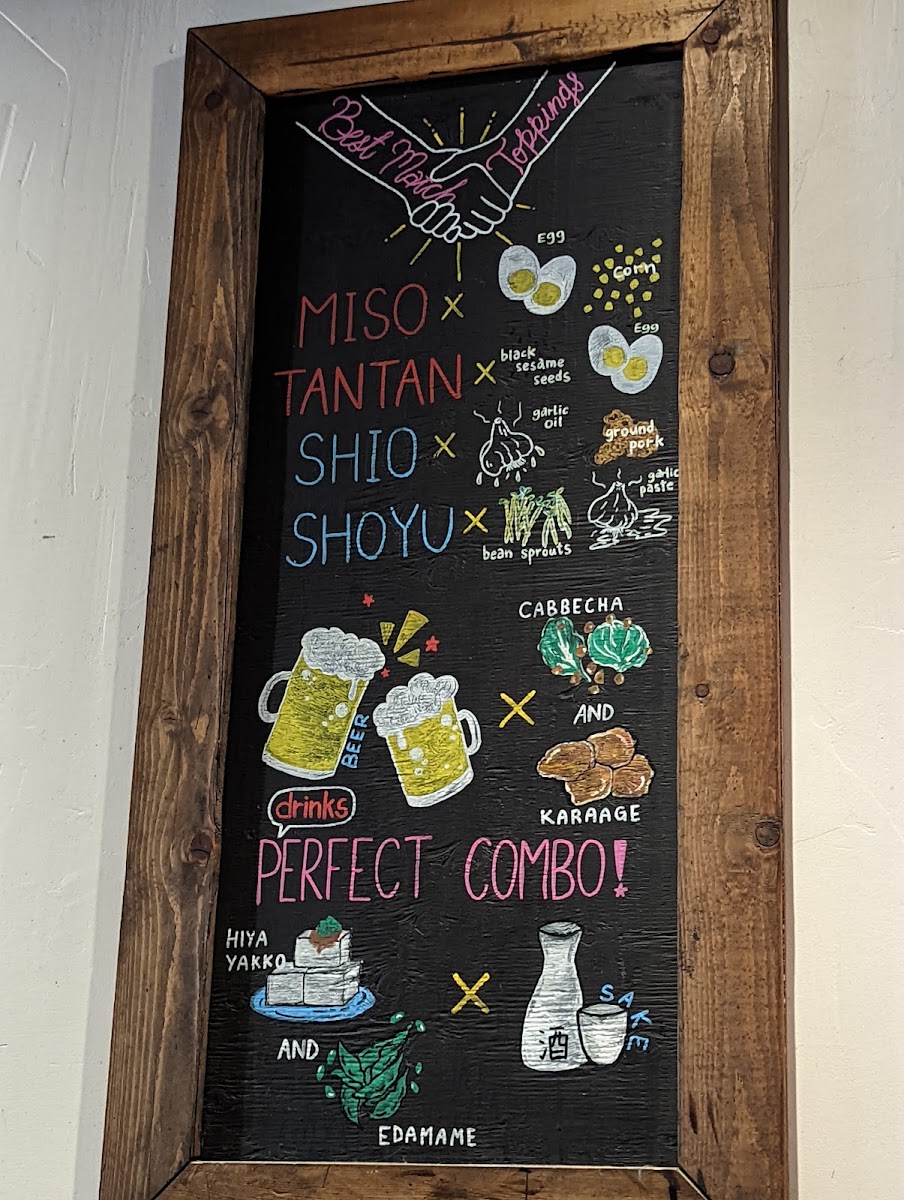 Best Match Toppings
Egg
corn
MISO x
Egg
TANTAN x
black
sesame
seeds
SHIO x
garlic
oil
ground
pork
SHOYU x
bean sprouts
garlic
paste
BEER
x
CABBECHA
AND
KARAAGE
drinks
PERFECT COMBO!
HIYA
YAKKO
AND
EDAMAME
x
SAKE
酒